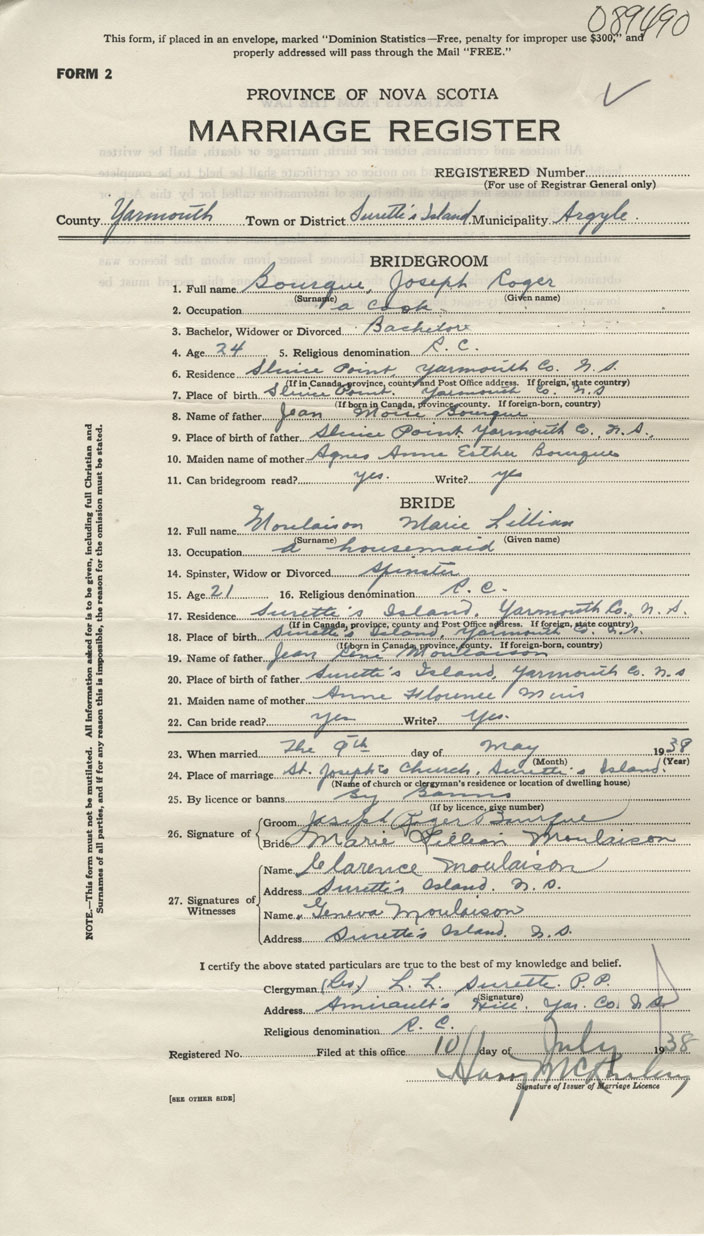 089490
This form, if placed in an envelope, marked "Dominion Statistics—Free, penalty for improper use $300," and
properly addressed will pass through the Mail "FREE."
FORM 2
PROVINCE OF NOVA SCOTIA
MARRIAGE REGISTER
REGISTERED Number
(For use of Registrar General only)
County Yarmouth Town or District Surette's Island Municipality Argyle.
BRIDEGROOM
1. Full name Bourque, Joseph Roger
(Surname) (Given name)
2. Occupation a cook
3. Bachelor, Widower or Divorced Bachelor
4. Age 24 5. Religious denomination R. C.
6. Residence Sluice Point, Yarmouth Co. N. S.
(If in Canada, province, county and Post Office address. If foreign, state country)
7. Place of birth Sluice Point. Yarmouth Co. N. S
(If born in Canada, province, county. If foreign-born, country)
8. Name of father Jean Bourque
9. Place of birth of father Sluice Point Yarmouth Co., N. S.,
10. Maiden name of mother Agnes Anne Esther Bourque
11. Can bridegroom read? yes. Write? yes
BRIDE
12. Full name Moulaison Marie Lillian
(Surname) (Given name)
13. Occupation a housemaid
14. Spinster, Widow or Divorced Spinster
15. Age 21 16. Religious denomination R. C.
17. Residence Surette's Island, Yarmouth Co., N. S.
(If in Canada, province, county and Post Office address. If foreign, state country)
18. Place of birth Surette's Island, Yarmouth Co. N. S.
(If born in Canada, province, county. If foreign-born, country)
19. Name of father Jean René Moulaison
20. Place of birth of father Surette's Island, Yarmouth Co. N. S
21. Maiden name of mother Anne Florence Muis
22. Can bride read? yes Write? Yes.
23. When married The 9th day of May 1938
(Month) (Year)
24. Place of marriage St. Joseph's Church, Surette's Island.
(Name of church or clergyman's residence or location of dwelling house)
25. By licence or banns By Banns
(If by licence, give number)
26. Signature of Groom Joseph Roger Bourque
Bride Marie Lillian Moulaison
27. Signatures of Witnesses
Name Clarence Moulaison
Address Surette's Island. N. S.
Name Geneva Moulaison
Address Surette's Island. N. S.
I certify the above stated particulars are true to the best of my knowledge and belief.
Clergyman (Rev) L. L. Surette. P. P.
(Signature)
Address Amirault's Hill, Yar. Co. N. S
Religious denomination R. C.
Registered No. Filed at this office 10 day of July 1938
Signature of Issuer of Marriage Licence
[SEE OTHER SIDE]
NOTE.—This form must not be mutilated. All information asked for is to be given, including full Christian and
Surnames of all parties, and if for any reason this is impossible, the reason for the omission must be stated.